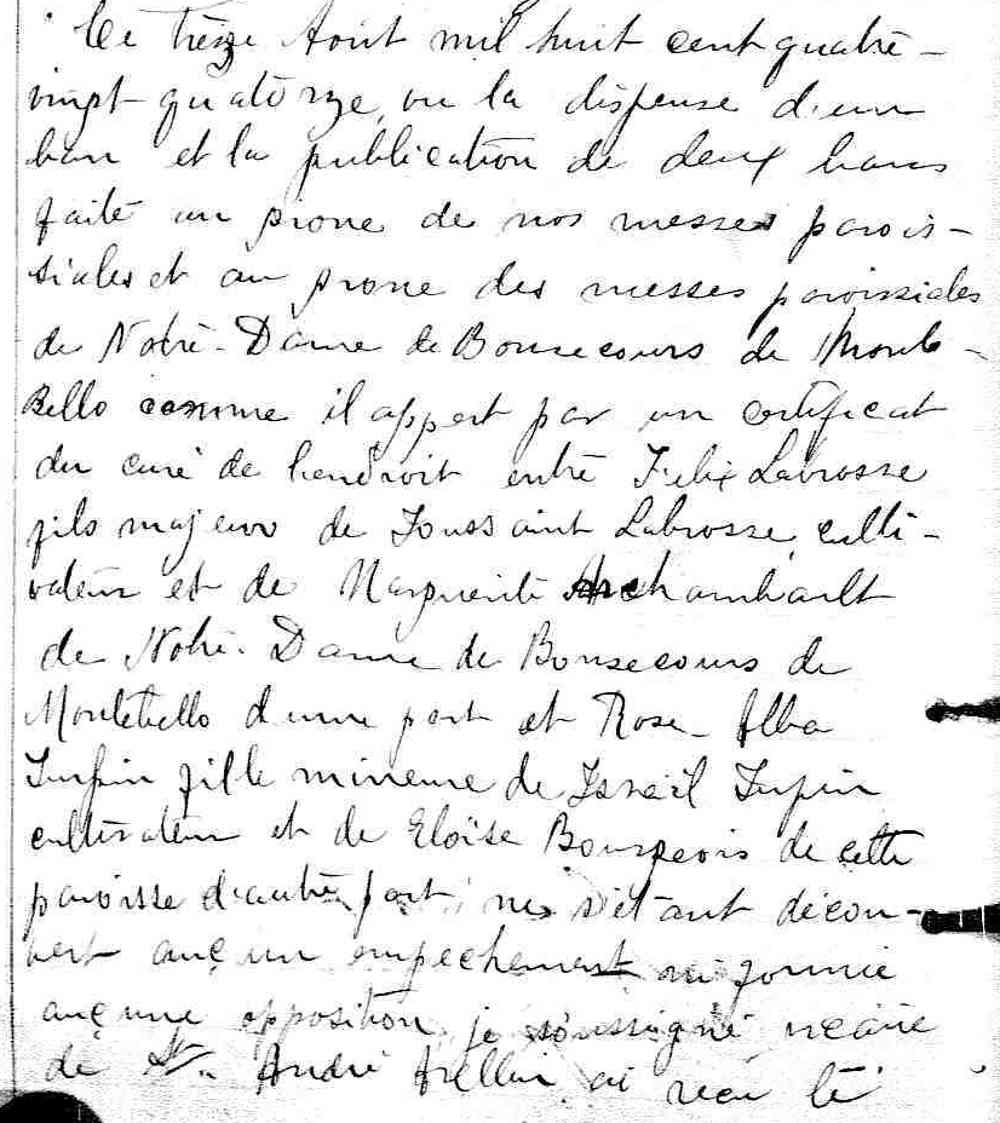 Ce treize Aout mil huit cent quatre-
vingt-quatorze, vu la dispense d'un
ban et la publication de deux bans
faite au prone de nos messes parois-
siales et au prone des messes paroissiales
de Notre-Dame de Bonsecours de Monte-
Bello comme il appert par un certificat
du curé de l'endroit entre Felix Labrosse
fils majeur de Toussaint Labrosse, culti-
vateur et de Marguerite Archambault
de Notre-Dame de Bonsecours de
Montebello d'une part et Rose-Alba
Turpin fille mineure de Israël Turpin
cultivateur et de Eloïse Bourgeois de cette
paroisse d'autre part; ne s'étant décou-
vert aucun empechement ni formé
aucune opposition, je soussigné vicaire
de St. André Avellin ai reçu le